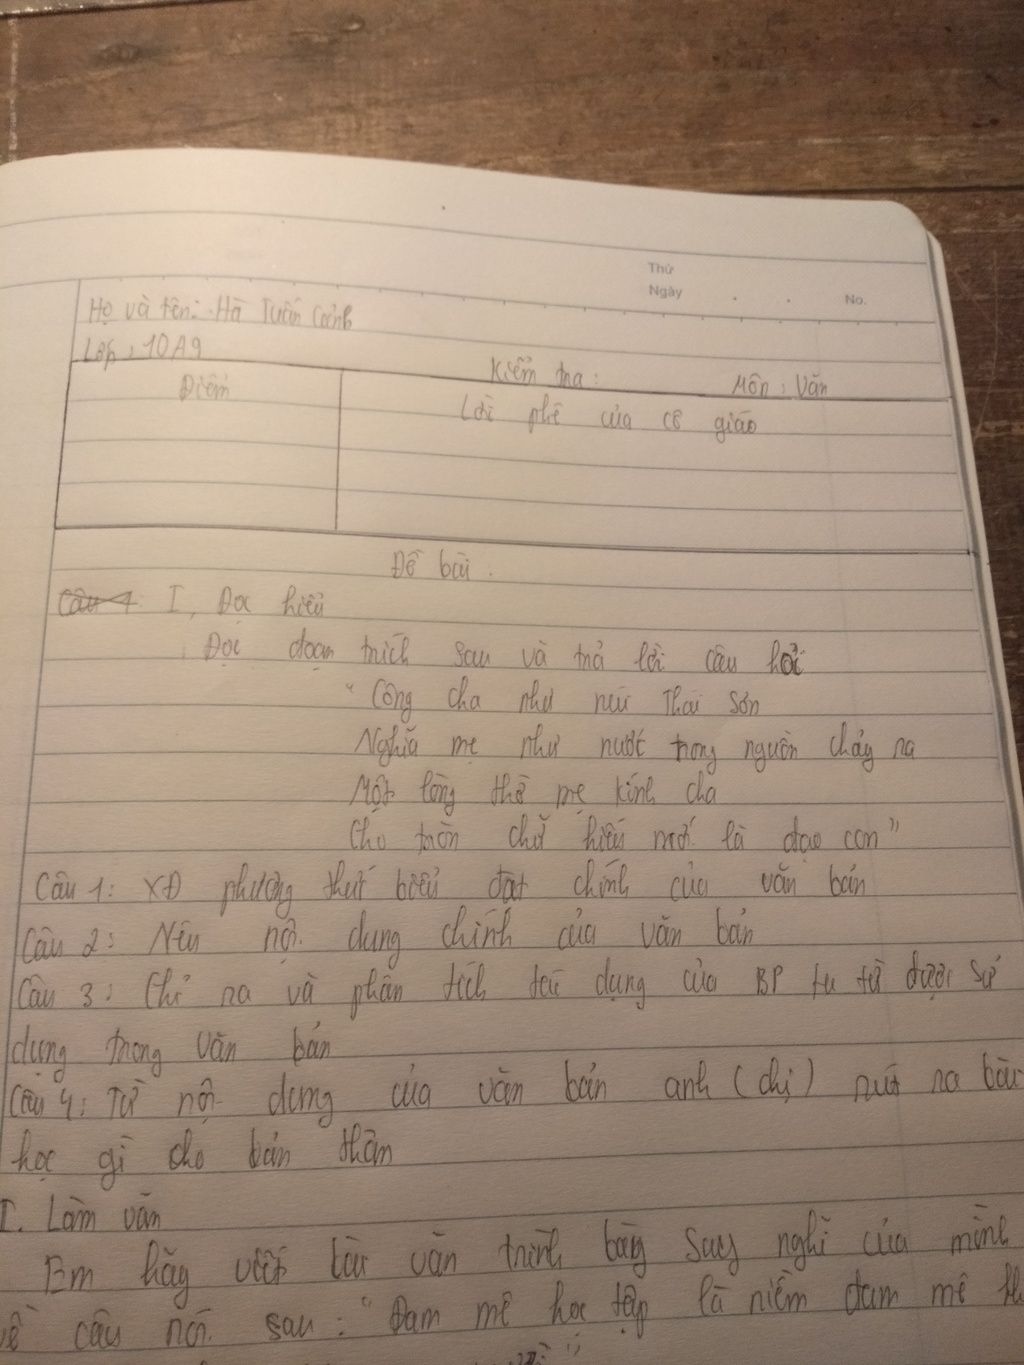 Thứ
Ngày
No.
Họ và tên: Hà Tuấn Cảnh
Lớp: 10A9
Kiểm tra: Môn: Văn
Điểm
Lời phê của cô giáo
Đề bài.
Câu 1 I, Đọc hiểu
Đọc đoạn trích sau và trả lời câu hỏi
"Công cha như núi Thái Sơn
Nghĩa mẹ như nước trong nguồn chảy ra
Một lòng thờ mẹ kính cha
Cho tròn chữ hiếu mới là đạo con"
Câu 1: XĐ phương thức biểu đạt chính của văn bản
Câu 2: Nêu nội dung chính của văn bản
Câu 3: Chỉ ra và phân tích tác dụng của BP tu từ được sử
dụng trong văn bản
Câu 4: Từ nội dung của văn bản anh (chị) rút ra bài
học gì cho bản thân
I. Làm văn
Em hãy viết bài văn trình bày suy nghĩ của mình
về câu nói sau: "Đam mê học tập là niềm đam mê